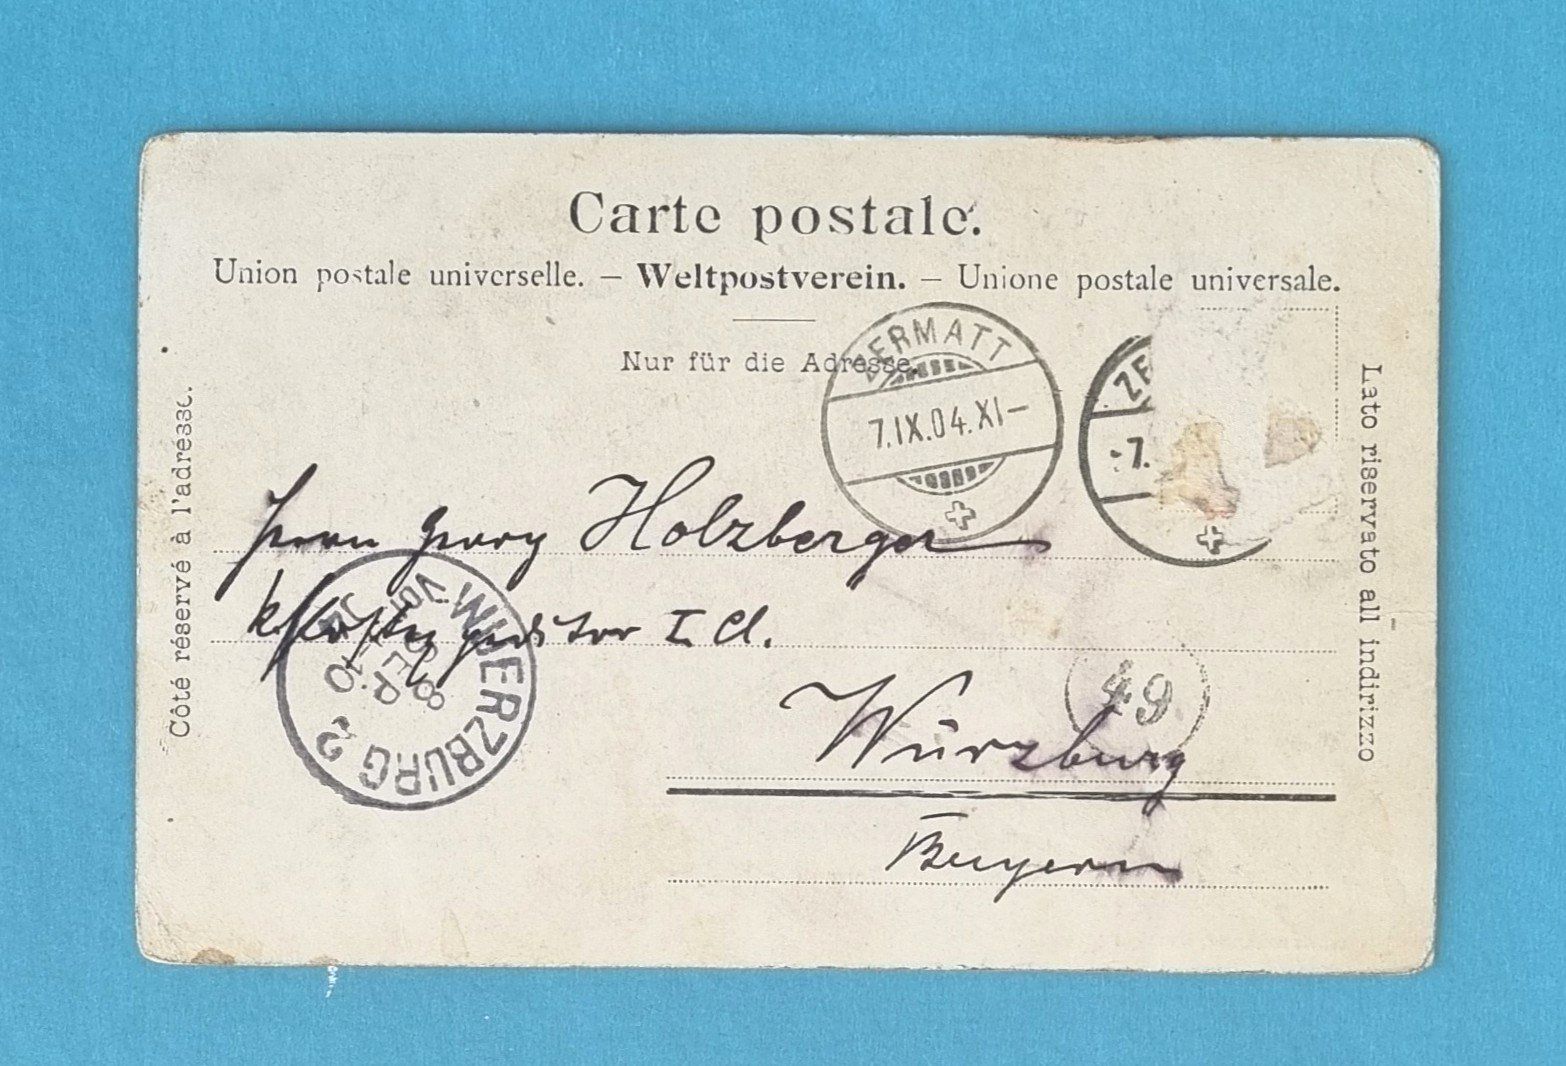 Carte postale.
Union postale universelle. – Weltpostverein. – Unione postale universale.
Nur für die Adresse.
ZERMATT
7.IX.04.XI–
ZE
7.
Côté réservé à l'adresse.
Lato riservato all indirizzo
Herrn Georg Holzberger
I. Cl.
WUERZBURG 2
8 SEP
49
Würzburg
Bayern